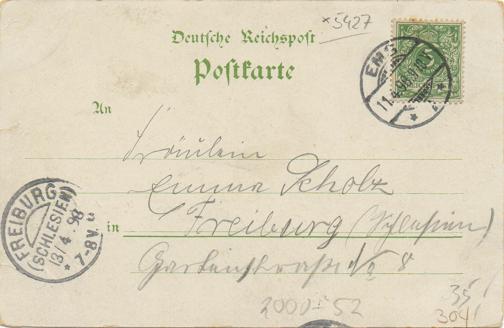 *5427
Deutsche Reichspost
Postkarte
EMS
11.4.98
5
An
Fräulein
Emma Scholz
in Freiburg (Schlesien)
Gartenstraße 8
FREIBURG
(SCHLESIEN)
13.4.98
7-8V.
2000 - 52
35
304